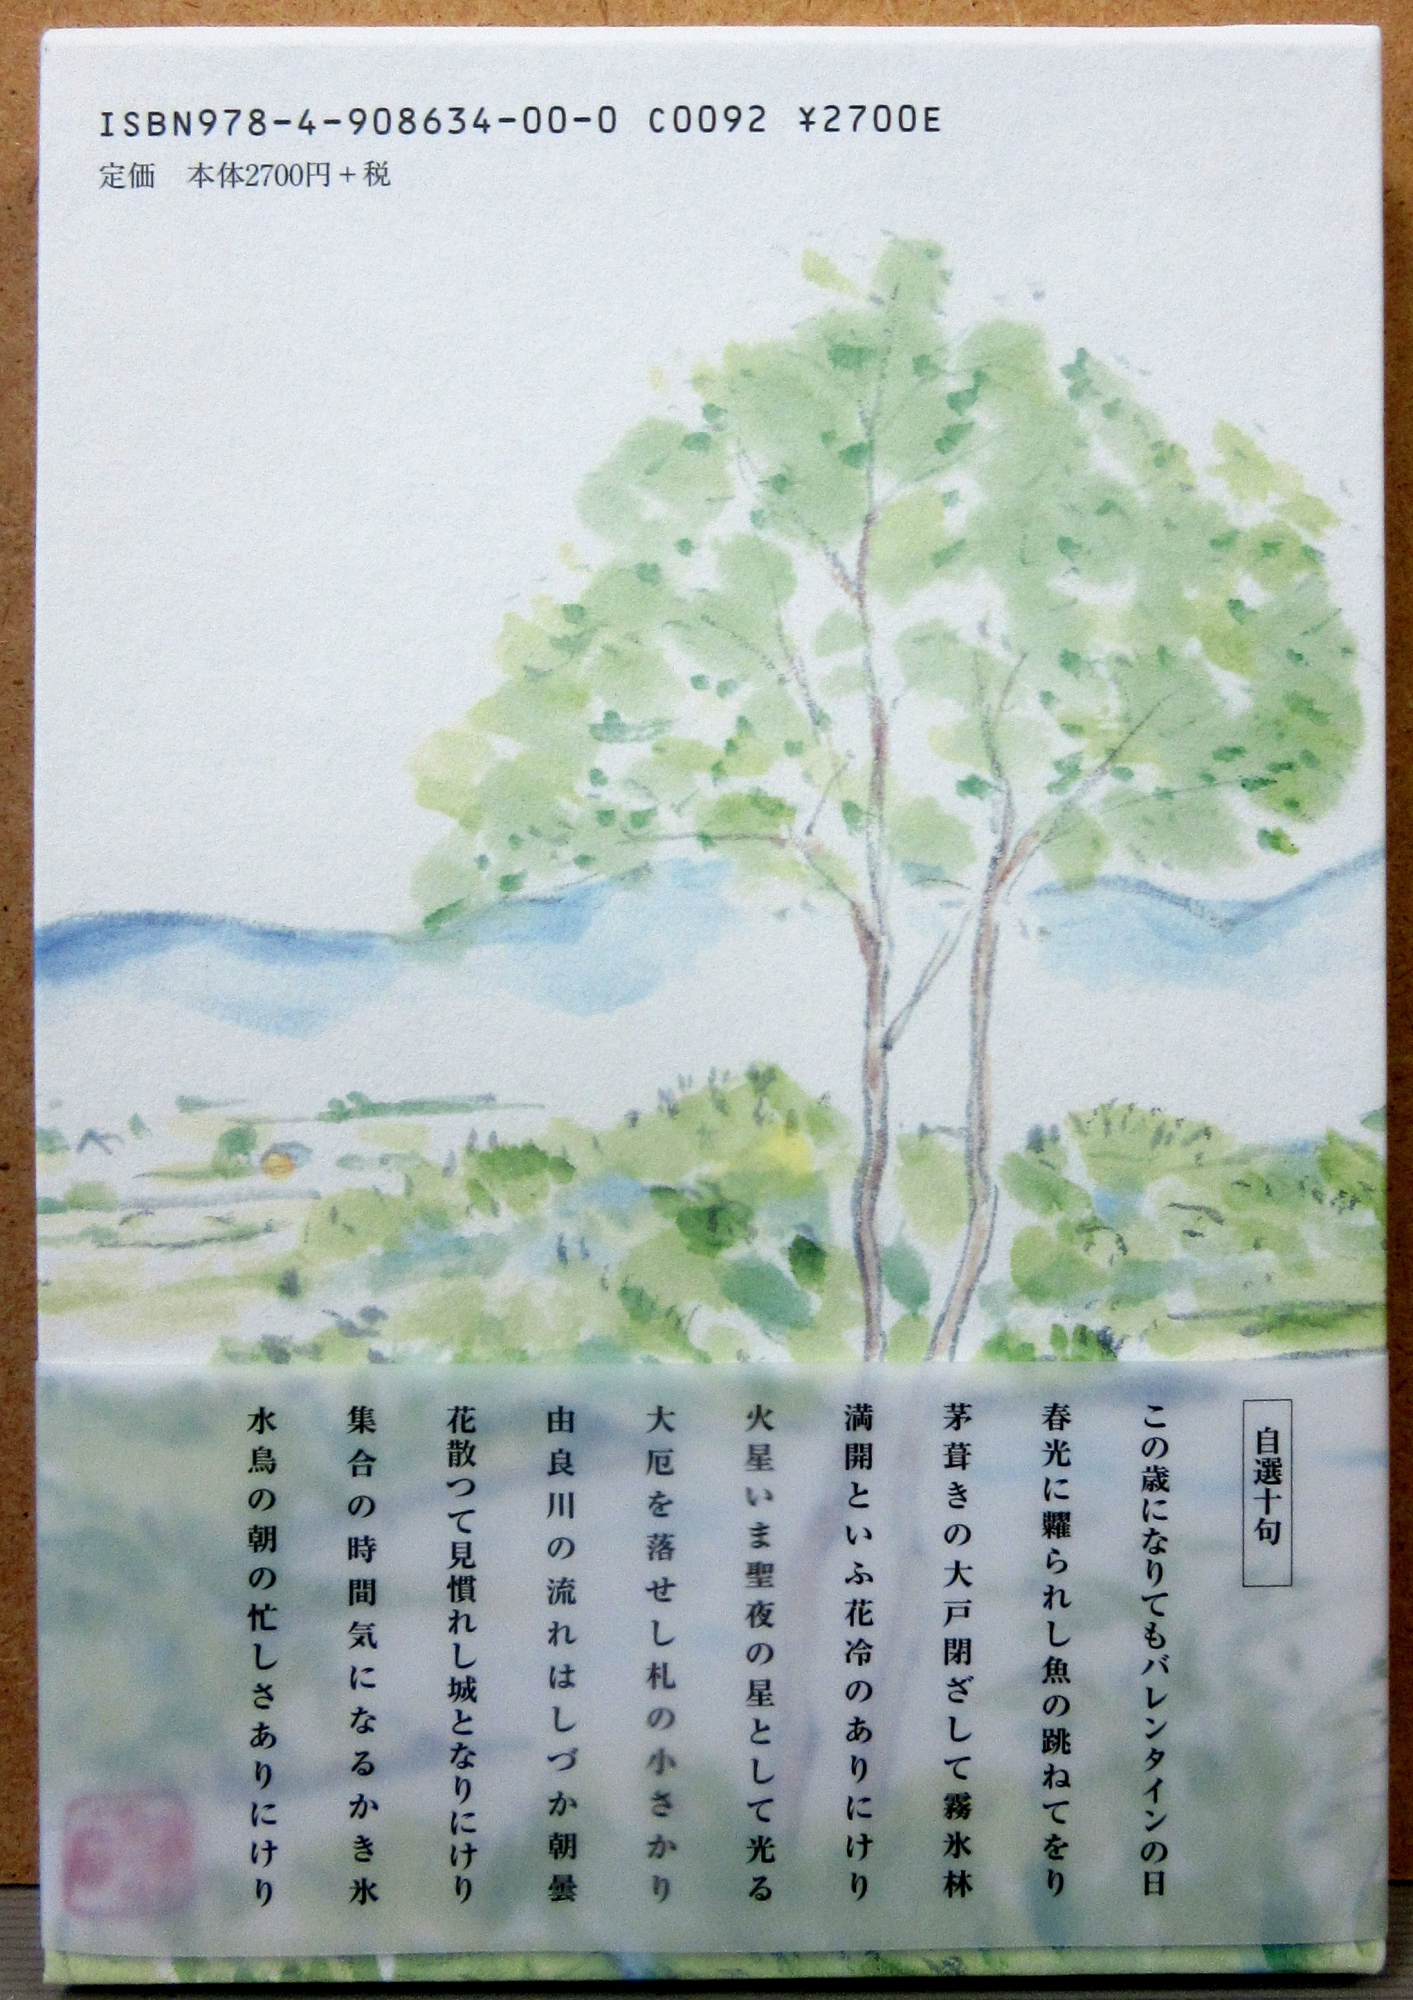 ISBN978-4-908634-00-0 C0092 ¥2700E
定価　本体2700円＋税
自選十句
この歳になりてもバレンタインの日
春光に糶られし魚の跳ねてをり
茅葺きの大戸閉ざして霧氷林
満開といふ花冷のありにけり
火星いま聖夜の星として光る
大厄を落せし札の小さかり
由良川の流れはしづか朝曇
花散つて見慣れし城となりにけり
集合の時間気になるかき氷
水鳥の朝の忙しさありにけり